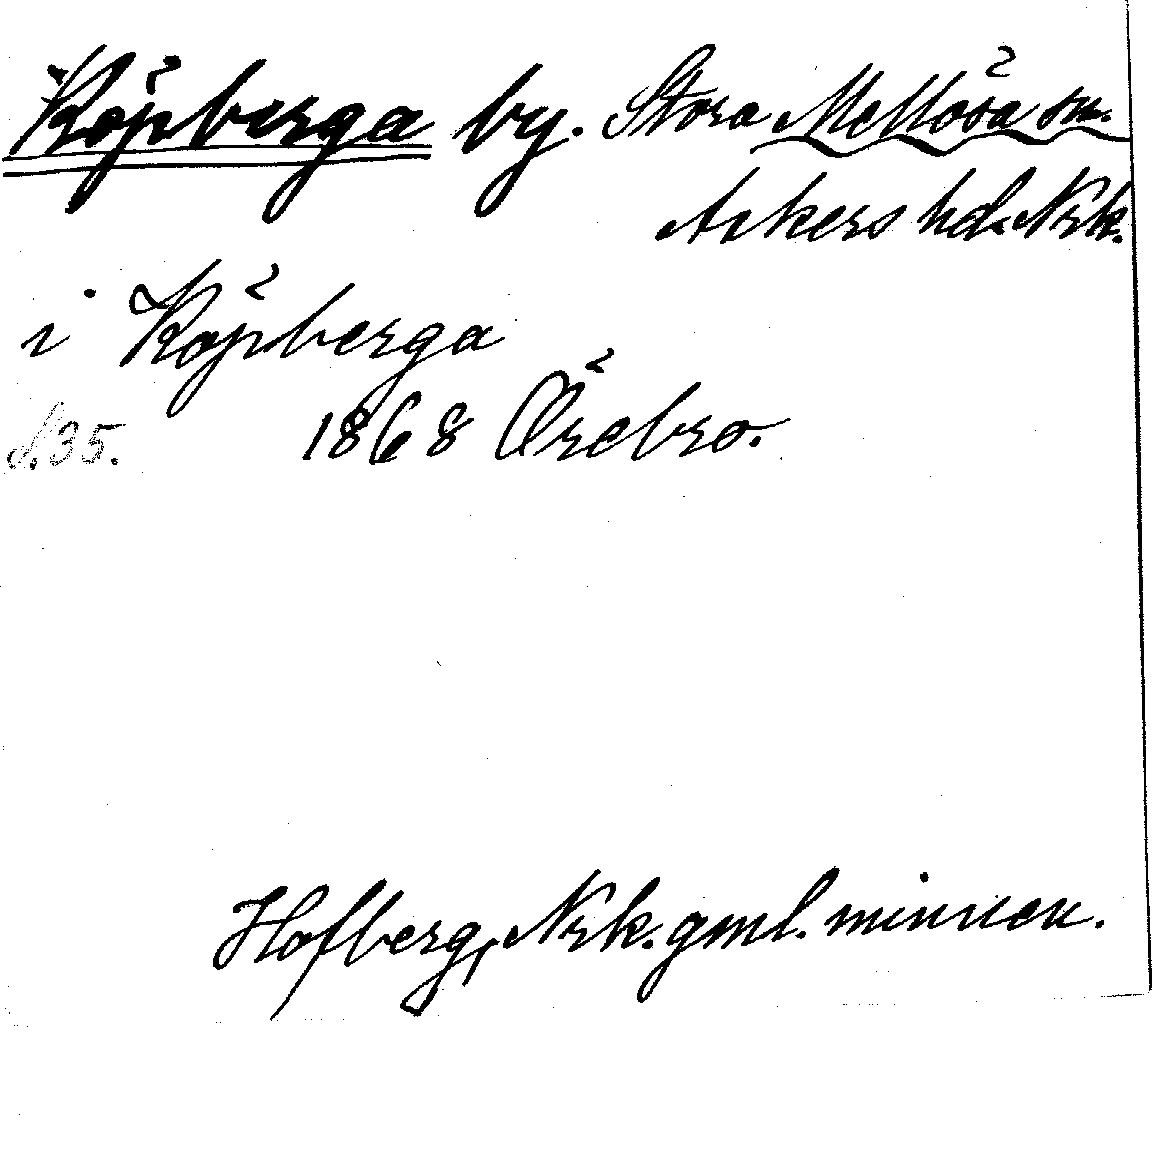 Köpberga by. Stora Mellösa sn.
Askers hd. Nrk.
i Köpberga
S.35. 1868 Örebro.
Hofberg, Nrk. gml. minnen.